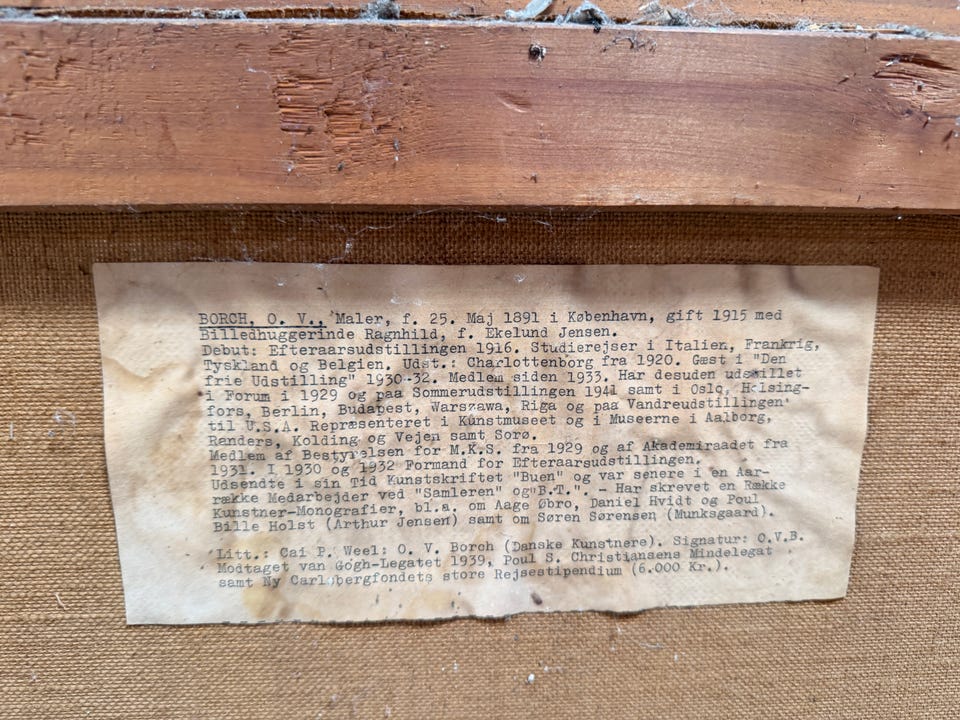 BORCH, O. V., Maler, f. 25. Maj 1891 i København, gift 1915 med
Billedhuggerinde Ragnhild, f. Ekelund Jensen.
Debut: Efteraarsudstillingen 1916. Studierejser i Italien, Frankrig,
Tyskland og Belgien. Udst.: Charlottenborg fra 1920. Gæst i "Den
frie Udstilling" 1930-32. Medlem siden 1933. Har desuden udstillet
i Forum i 1929 og paa Sommerudstillingen 1941 samt i Oslo, Helsing-
fors, Berlin, Budapest, Warszawa, Riga og paa Vandreudstillingen
til U.S.A. Repræsenteret i Kunstmuseet og i Museerne i Aalborg,
Randers, Kolding og Vejen samt Sorø.
Medlem af Bestyrelsen for M.K.S. fra 1929 og af Akademiraadet fra
1931. I 1930 og 1932 Formand for Efteraarsudstillingen.
Udsendte i sin Tid Kunstskriftet "Buen" og var senere i en Aar-
række Medarbejder ved "Samleren" og "B.T.". - Har skrevet en Række
Kunstner-Monografier, bl.a. om Aage Øbro, Daniel Hvidt og Poul
Bille Holst (Arthur Jensen) samt om Søren Sørensen (Munksgaard).
Litt.: Cai P. Weel: O. V. Borch (Danske Kunstnere). Signatur: O.V.B.
Modtaget van Gogh-Legatet 1939, Poul S. Christiansens Mindelegat
samt Ny Carlsbergfondets store Rejsestipendium (6.000 Kr.).